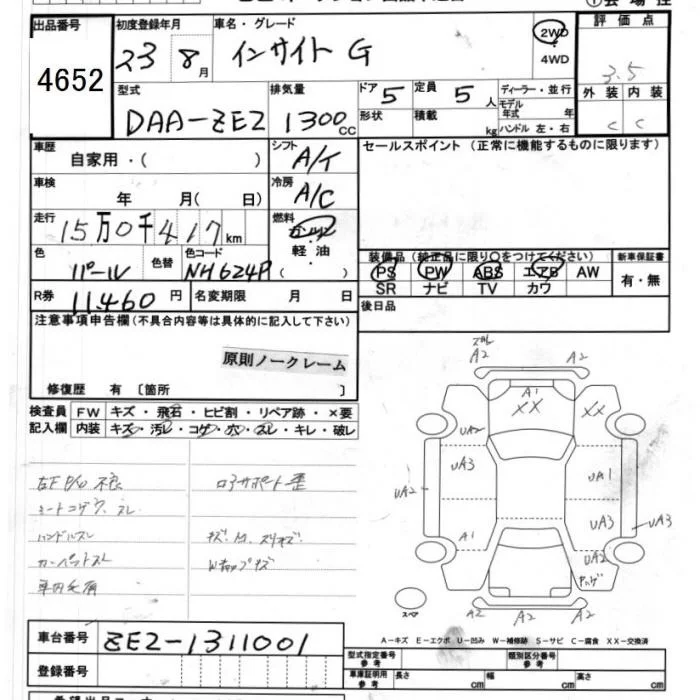 出品番号 初度登録年月 車名・グレード 評価点
4652 23 8月 インサイト G 2WD 3.5
4WD
型式 排気量 ドア 5 定員 5人 ディーラー・並行 外装 内装
DAA-ZE2 1300cc 形状 積載 kg モデル年式 年 C C
ハンドル左・右
車歴 シフト セールスポイント (正常に機能するものに限ります)
自家用・( ) A/T
車検 冷房
年 月( 日) A/C
走行 15万0千417km 燃料 ガソリン
軽油
( )
色 パール 色替 色コード NH624P
装備品 (純正品に限り○をつけてください) 新車保証書
PS PW ABS エアB AW 有・無
SR ナビ TV カワ
R券 11,460円 名変期限 月 日 後日品
注意事項申告欄(不具合内容等は具体的に記入して下さい)
原則ノークレーム
修復歴 有 〔箇所 〕
検査員 FW キズ・飛石・ヒビ割・リペア跡・×要
記入欄 内装 キズ・汚レ・コゲ・穴・スレ・キレ・破レ
左F P/W 不良 ロアサポート歪
シートコゲ穴、スレ
ハンドルスレ
カーペットスレ
A2 A2
A1
XX XX
UA2
UA3 UA1
UA2 UA3 UA3
A1 UA2
スペア A2 A2 A2
A-キズ E-エクボ U-凹み W-補修跡 S-サビ C-腐食 XX-交換済
車台番号 ZE2-1311001
型式指定番号 参考 類別区分番号 参考
登録番号 車庫証明用 参考 長さ cm 幅 cm 高さ cm